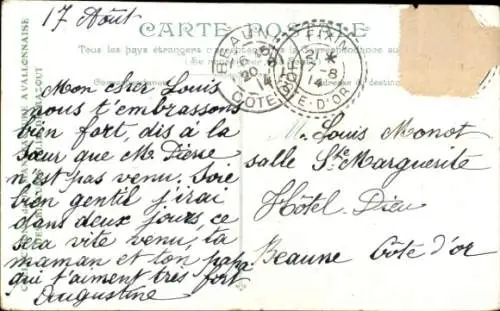 17 Août
CARTE POSTALE
Tous les pays étrangers
BEAUNE
20 -8
14
CÔTE-D'OR
FIXIN
21 -8
14
CÔTE-D'OR
Mon cher Louis
nous t'embrassons
bien fort, dis à la
Sœur que M. Pierre
n'est pas venu. Sois
bien gentil j'irai
dans deux jours, ce
sera vite venu, ta
maman et ton papa
qui t'aiment très fort
Augustine
M. Louis Monot
salle Ste Marguerite
Hôtel-Dieu
Beaune Côte d'or